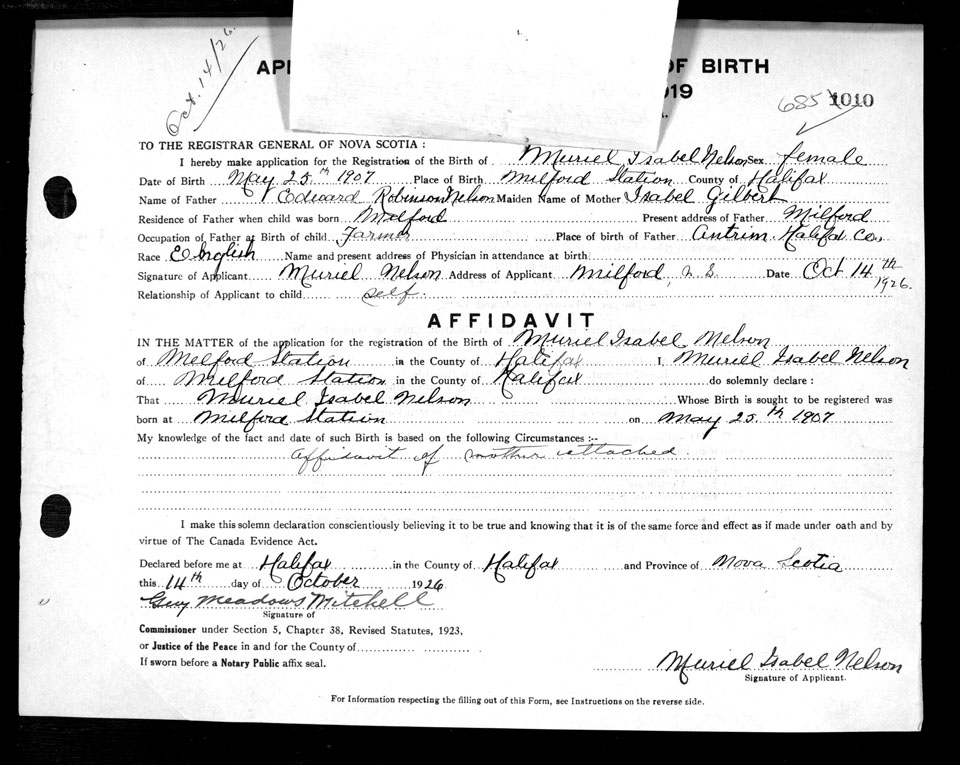 Oct. 14/26.
AP OF BIRTH
019
685 1010
A.
TO THE REGISTRAR GENERAL OF NOVA SCOTIA :
I hereby make application for the Registration of the Birth of Muriel Isabel Nelson Sex female
Date of Birth May 25th 1907 Place of Birth Milford Station County of Halifax
Name of Father Edward Robinson Nelson Maiden Name of Mother Isabel Gilbert
Residence of Father when child was born Milford Present address of Father Milford
Occupation of Father at Birth of child Farmer Place of birth of Father Antrim Halifax Co.
Race English Name and present address of Physician in attendance at birth
Signature of Applicant Muriel Nelson Address of Applicant Milford, N.S. Date Oct 14th 1926.
Relationship of Applicant to child self.
AFFIDAVIT
IN THE MATTER of the application for the registration of the Birth of Muriel Isabel Nelson
of Melford Station in the County of Halifax I, Muriel Isabel Nelson
of Milford Station in the County of Halifax do solemnly declare :
That Muriel Isabel Nelson Whose Birth is sought to be registered was
born at Milford Station on May 25th 1907
My knowledge of the fact and date of such Birth is based on the following Circumstances :--
Affidavit of mother attached.
I make this solemn declaration conscientiously believing it to be true and knowing that it is of the same force and effect as if made under oath and by
virtue of The Canada Evidence Act.
Declared before me at Halifax in the County of Halifax and Province of Nova Scotia
this 14th day of October 1926
Guy Meadows Mitchell
Signature of
Commissioner under Section 5, Chapter 38, Revised Statutes, 1923,
or Justice of the Peace in and for the County of
If sworn before a Notary Public affix seal.
Muriel Isabel Nelson
Signature of Applicant.
For Information respecting the filling out of this Form, see Instructions on the reverse side.